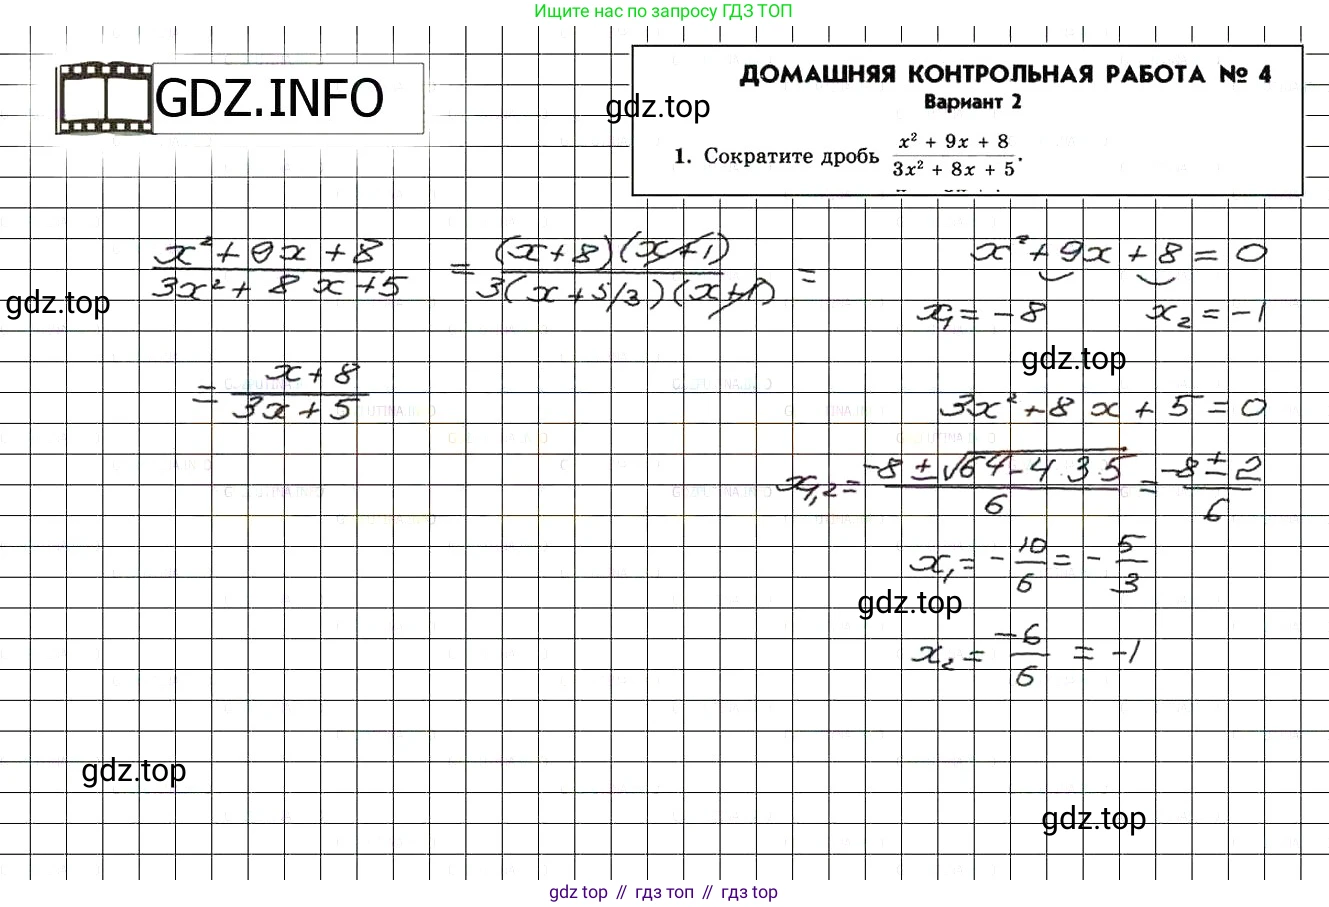 Ищите нас по запросу ГДЗ ТОП
GDZ.INFO
ДОМАШНЯЯ КОНТРОЛЬНАЯ РАБОТА № 4
gdz.top
Вариант 2
1. Сократите дробь (x² + 9x + 8)/(3x² + 8x + 5).
(x² + 9x + 8)/(3x² + 8x + 5) = ((x + 8)(x + 1))/(3(x + 5/3)(x + 1)) =
= (x + 8)/(3x + 5)
gdz.top
x² + 9x + 8 = 0
x₁ = -8 x₂ = -1
gdz.top
3x² + 8x + 5 = 0
x₁,₂ = (-8 ± √(64 - 4·3·5))/6 = (-8 ± 2)/6
x₁ = -10/6 = -5/3
gdz.top
x₂ = -6/6 = -1
gdz.top
gdz.top
gdz top // гдз топ // gdz top